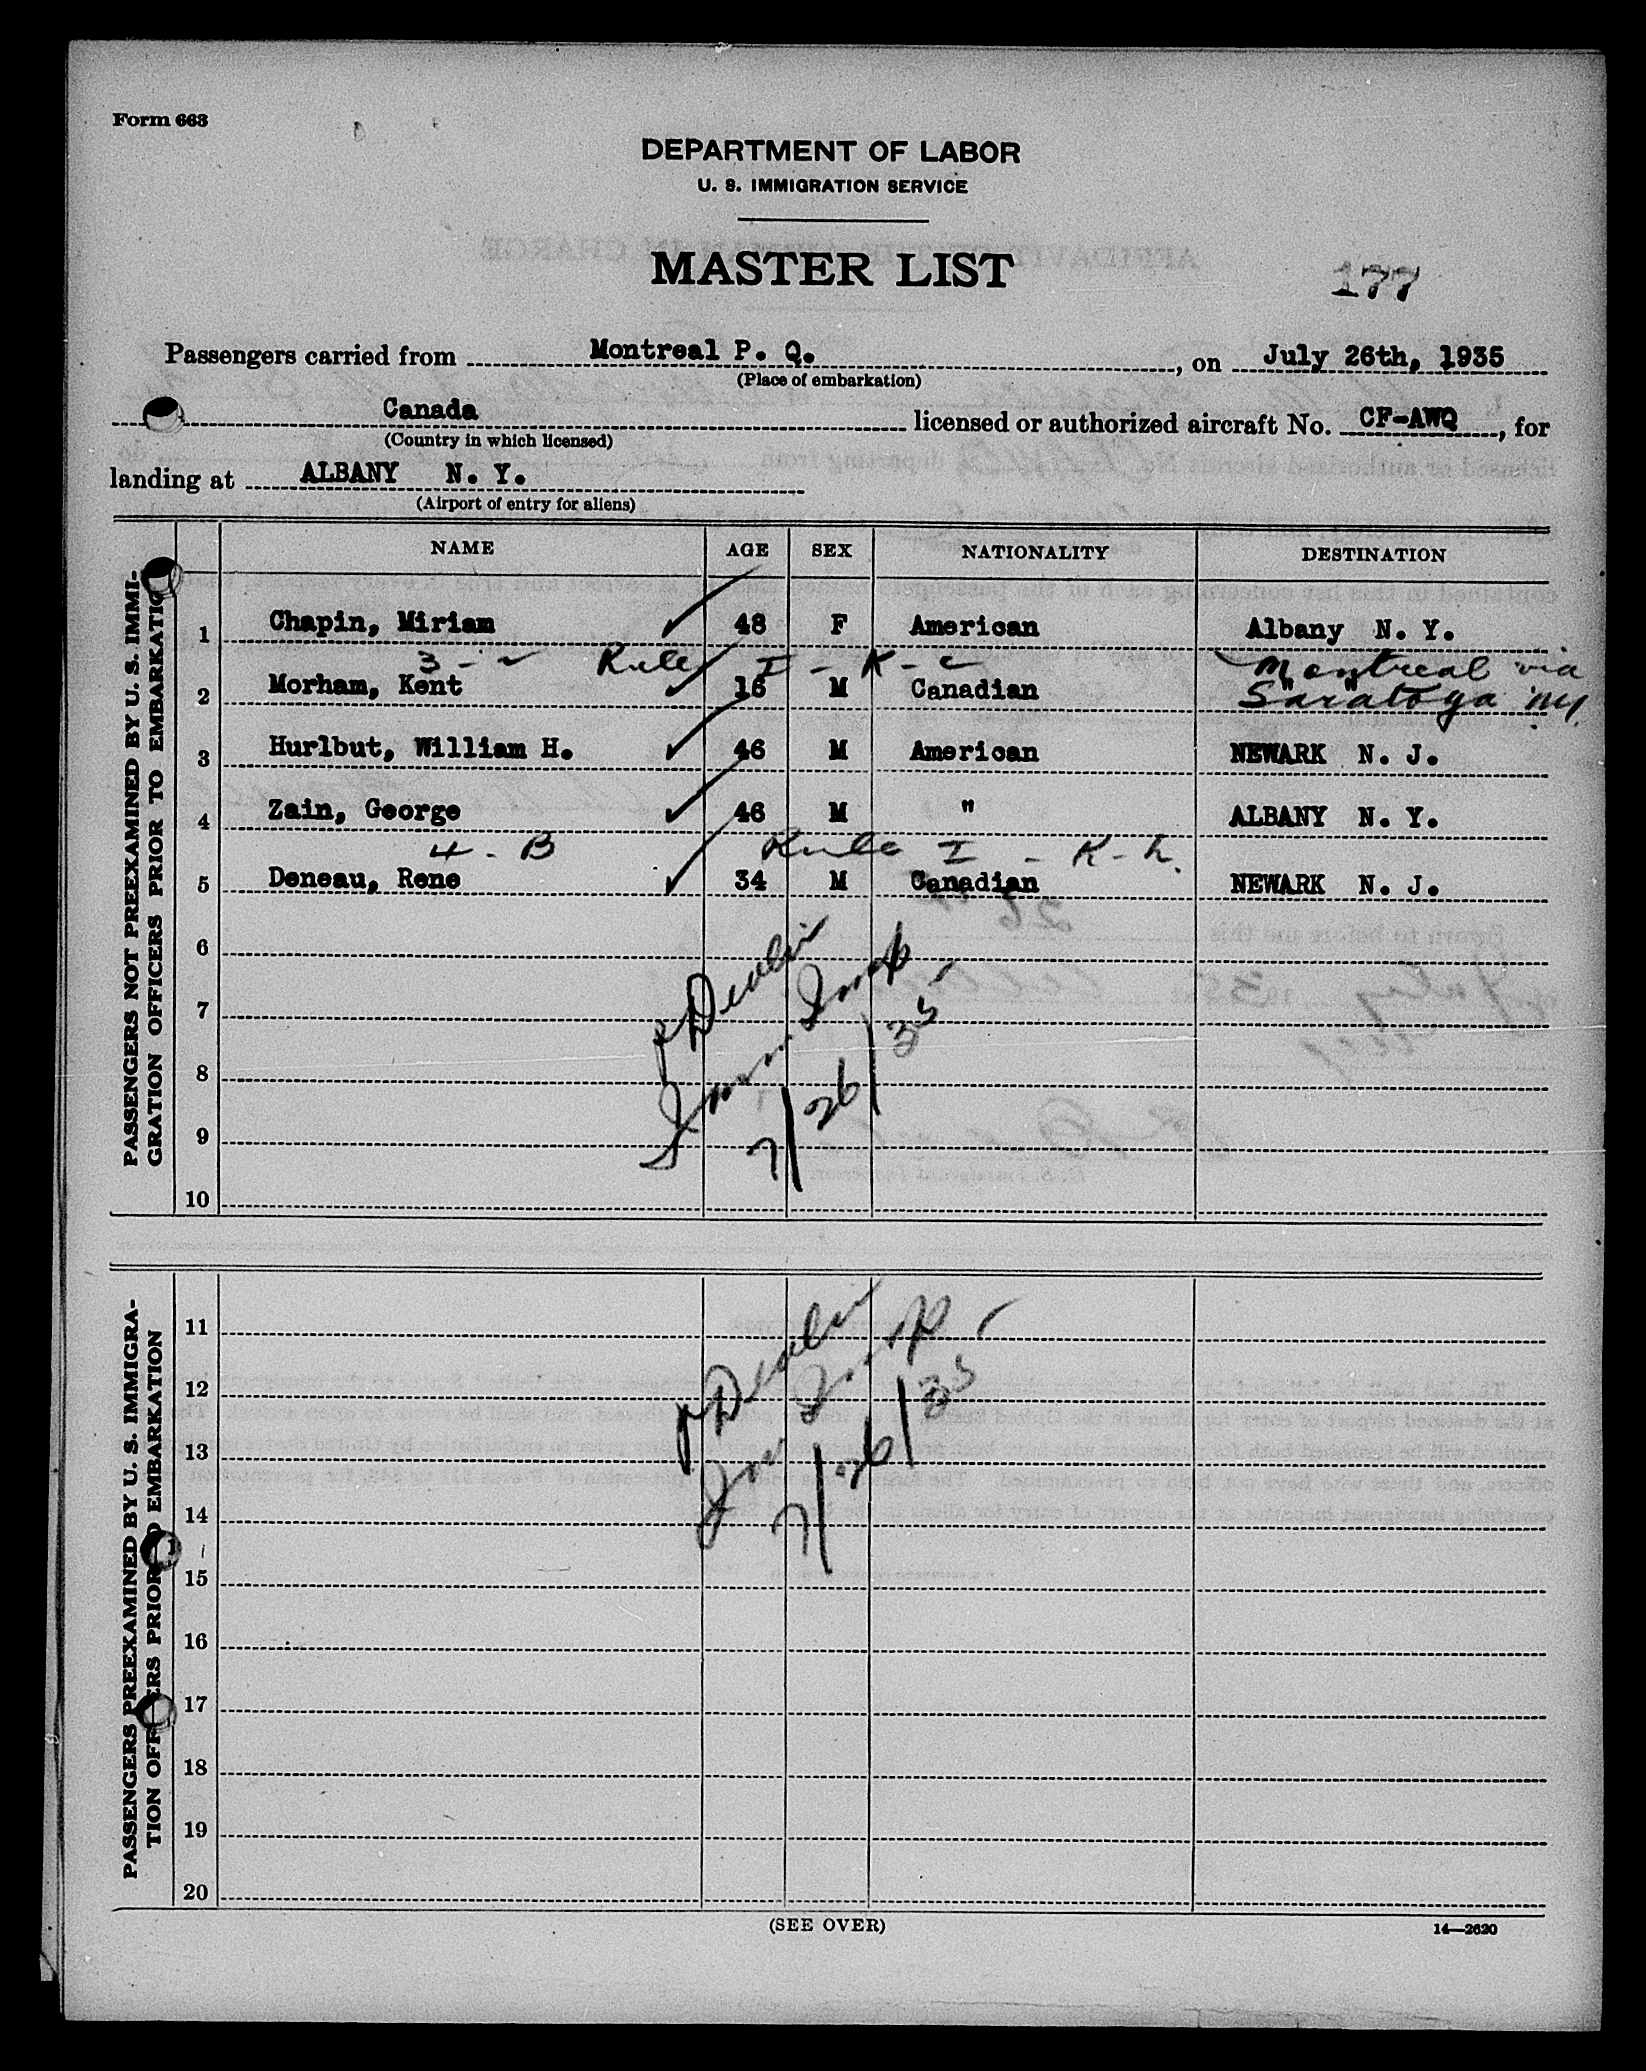 Form 663
DEPARTMENT OF LABOR
U. S. IMMIGRATION SERVICE
MASTER LIST
177
Passengers carried from Montreal P. Q., on July 26th, 1935
(Place of embarkation)
Canada licensed or authorized aircraft No. CF-AWQ, for
(Country in which licensed)
landing at ALBANY N. Y.
(Airport of entry for aliens)
PASSENGERS NOT PREEXAMINED BY U. S. IMMI-
GRATION OFFICERS PRIOR TO EMBARKATIO
NAME AGE SEX NATIONALITY DESTINATION
1 Chapin, Miriam 48 F American Albany N. Y.
3 - Rule I - K - Montreal via
2 Morham, Kent 16 M Canadian Saratoga NY.
3 Hurlbut, William H. 46 M American NEWARK N. J.
4 Zain, George 46 M " ALBANY N. Y.
4 - B Rule I - K - h.
5 Deneau, Rene 34 M Canadian NEWARK N. J.
6
7
8
9
10
Imm. Insp
7/26/35
PASSENGERS PREEXAMINED BY U. S. IMMIGRA-
TION OFFICERS PRIOR TO EMBARKATION
11
12
13
14
15
16
17
18
19
20
Imm. Insp
7/26/35
(SEE OVER)
14—2620